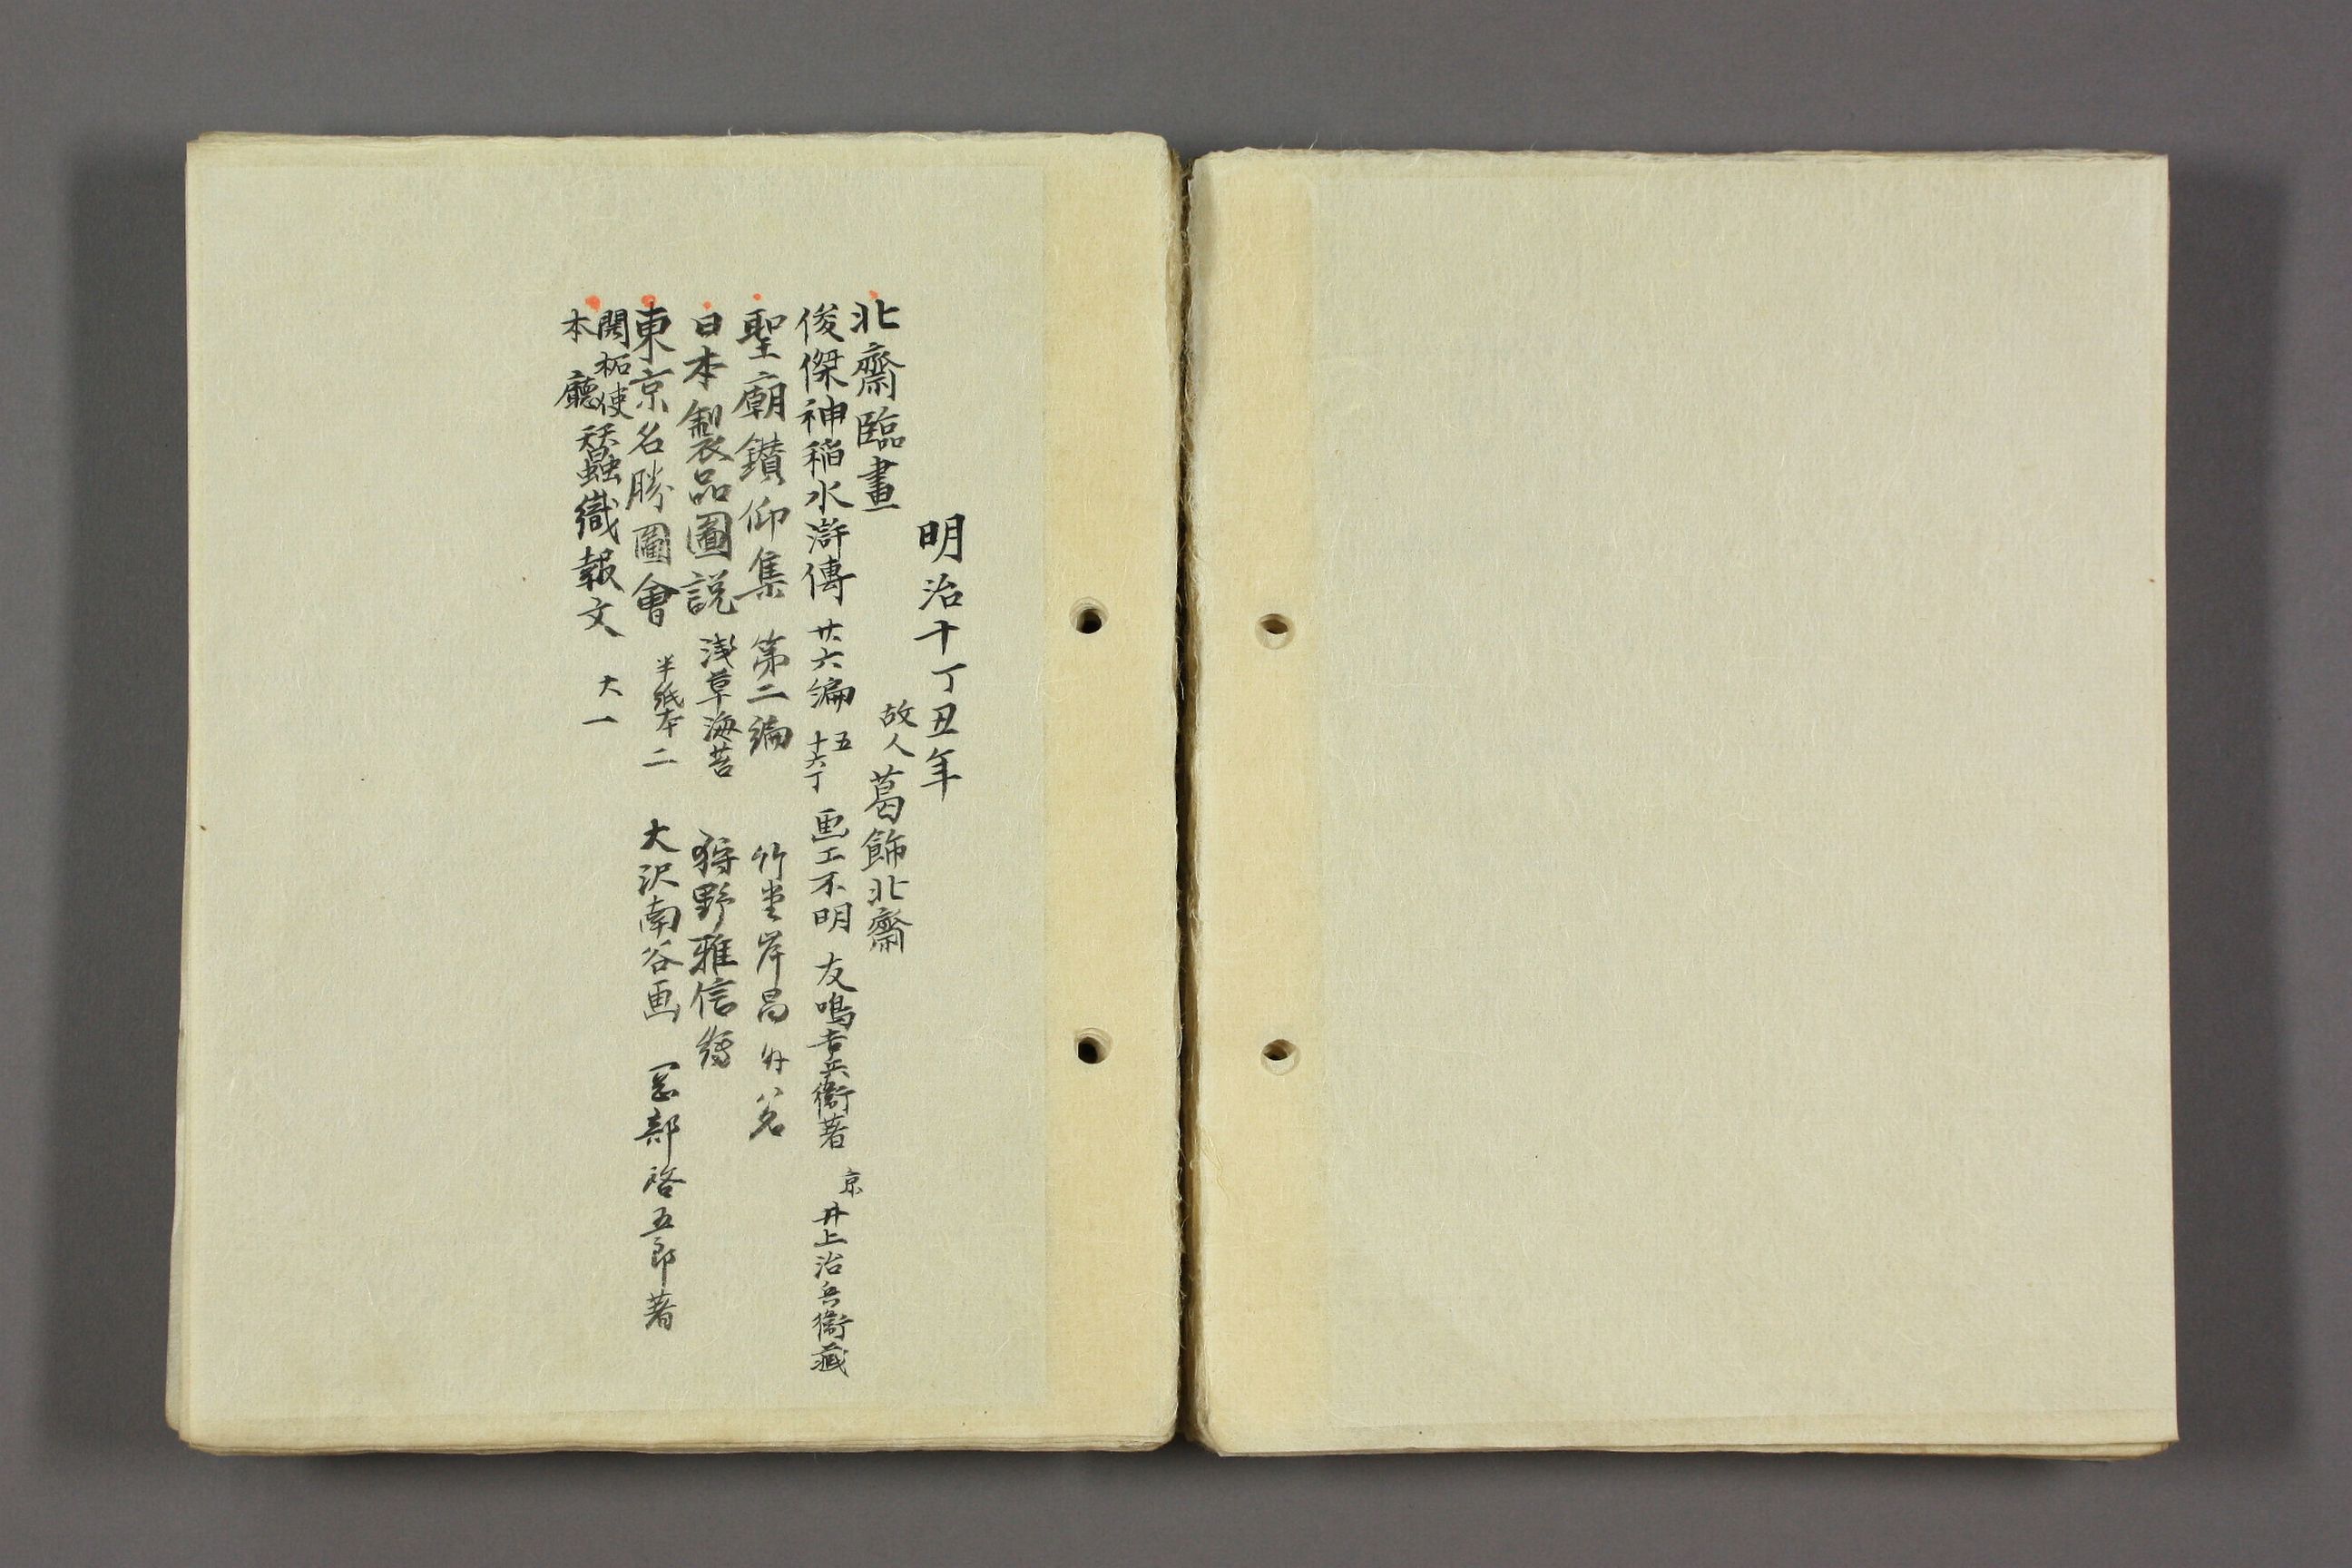 明治十丁丑年
北齋臨畫　故人葛飾北齋
俊傑神稲水滸傳　廿六編　五　十六丁　画工不明　友鳴吉兵衞著　京　井上治兵衞藏
聖廟鑚仰集　第二編　竹堂岸昌
日本製品圖説　浅草海苔　狩野雅信
東京名勝圖會　半紙本二　大沢南谷画　岡部啓五郎著
開拓使
本廳　蚕織報文　大一